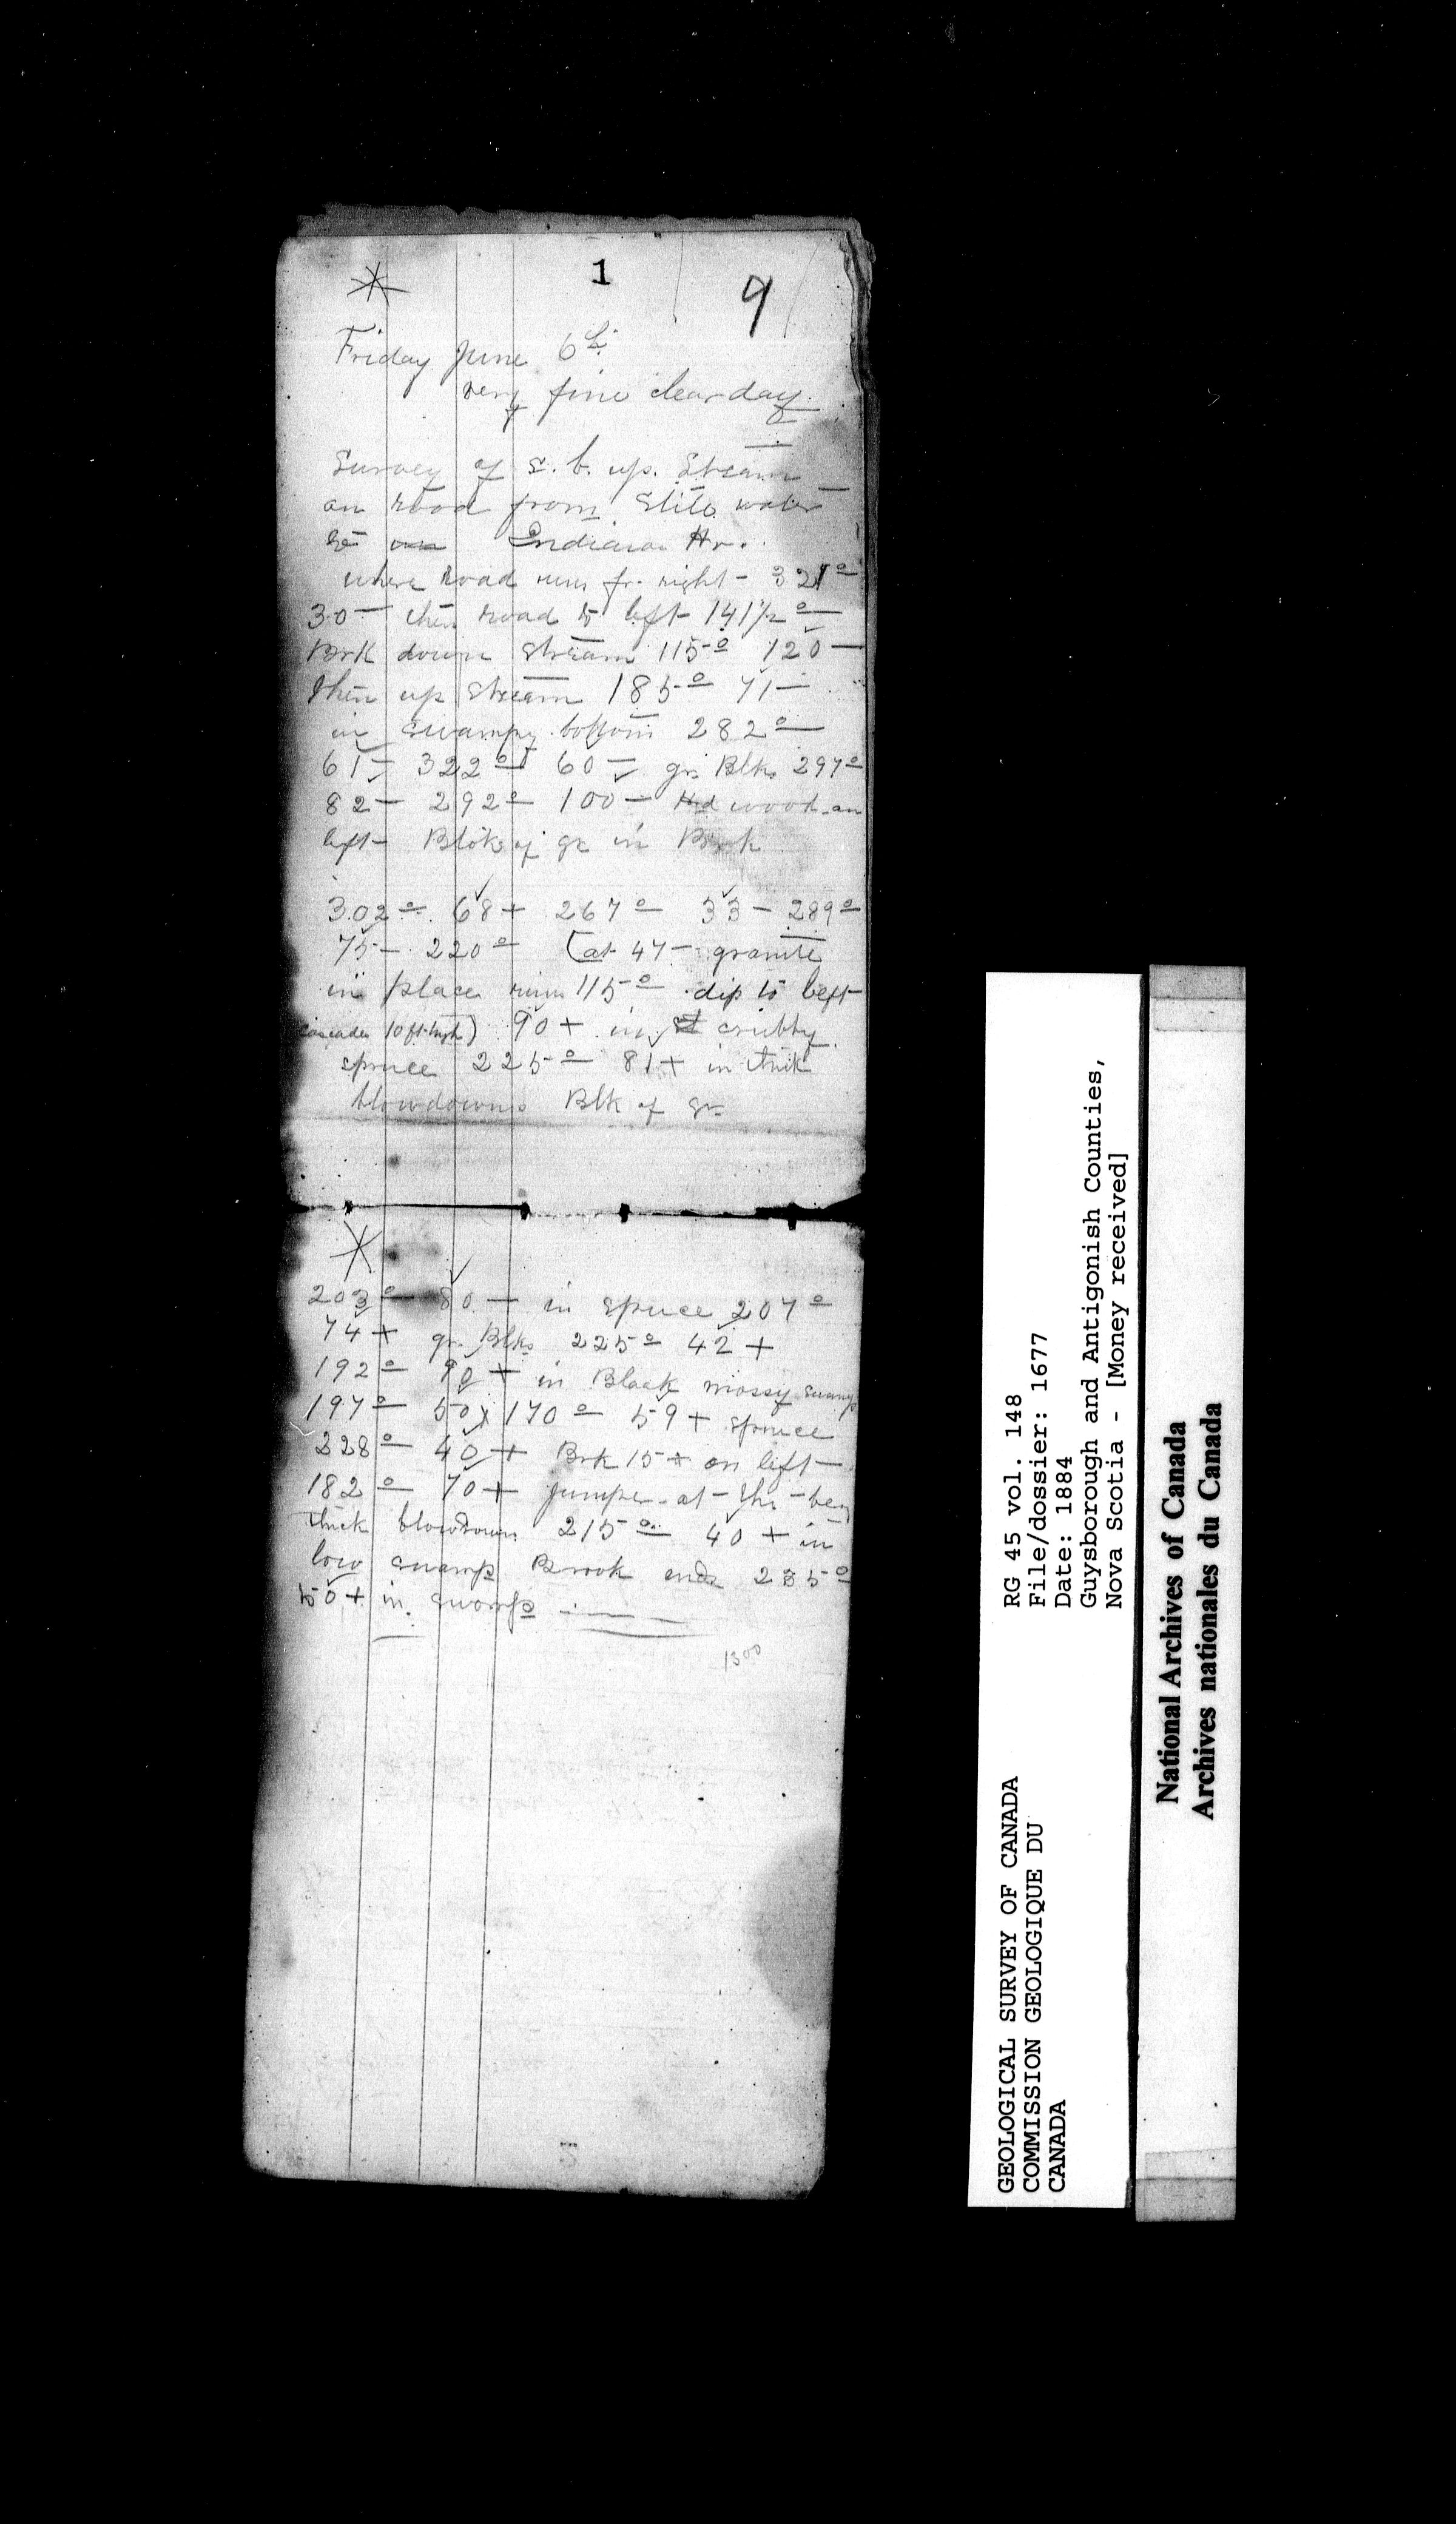 1
9
Friday June 6th
very fine clear day
Survey of s. b. up. Stream
on road from Still water
to Indian Hr.
where road runs fr. right - 321°
30 - then road to left 141½°
Brk down stream 115° 120 -
then up stream 185° 71 -
in swampy bottom 282° -
61 - 322° 60 - gr. Blks 297°
82 - 292° 100 - Hd wood on
left Blks of gr in Brk
302° 68 + 267° 33 - 289°
75 - 220° (at 47 - granite
in place runs 115° dip to left
cascades 10 ft high) 90 + in scrubby
spruce 225° 81 + in thick
blowdowns Blk of gr
203° 80 - in spruce 207°
74 + gr. Blks 225° 42 +
192° 90 + in Black mossy swamp
197° 50 x 170° 59 + spruce
228° 40 + Brk 15 + on left
182° 70 + jumper at the beg
thick blowdown 215° 40 + in
low swamp Brook ends 235°
50 + in swamp
1300
GEOLOGICAL SURVEY OF CANADA
COMMISSION GEOLOGIQUE DU
CANADA
RG 45 vol. 148
File/dossier: 1677
Date: 1884
Guysborough and Antigonish Counties,
Nova Scotia - [Money received]
National Archives of Canada
Archives nationales du Canada